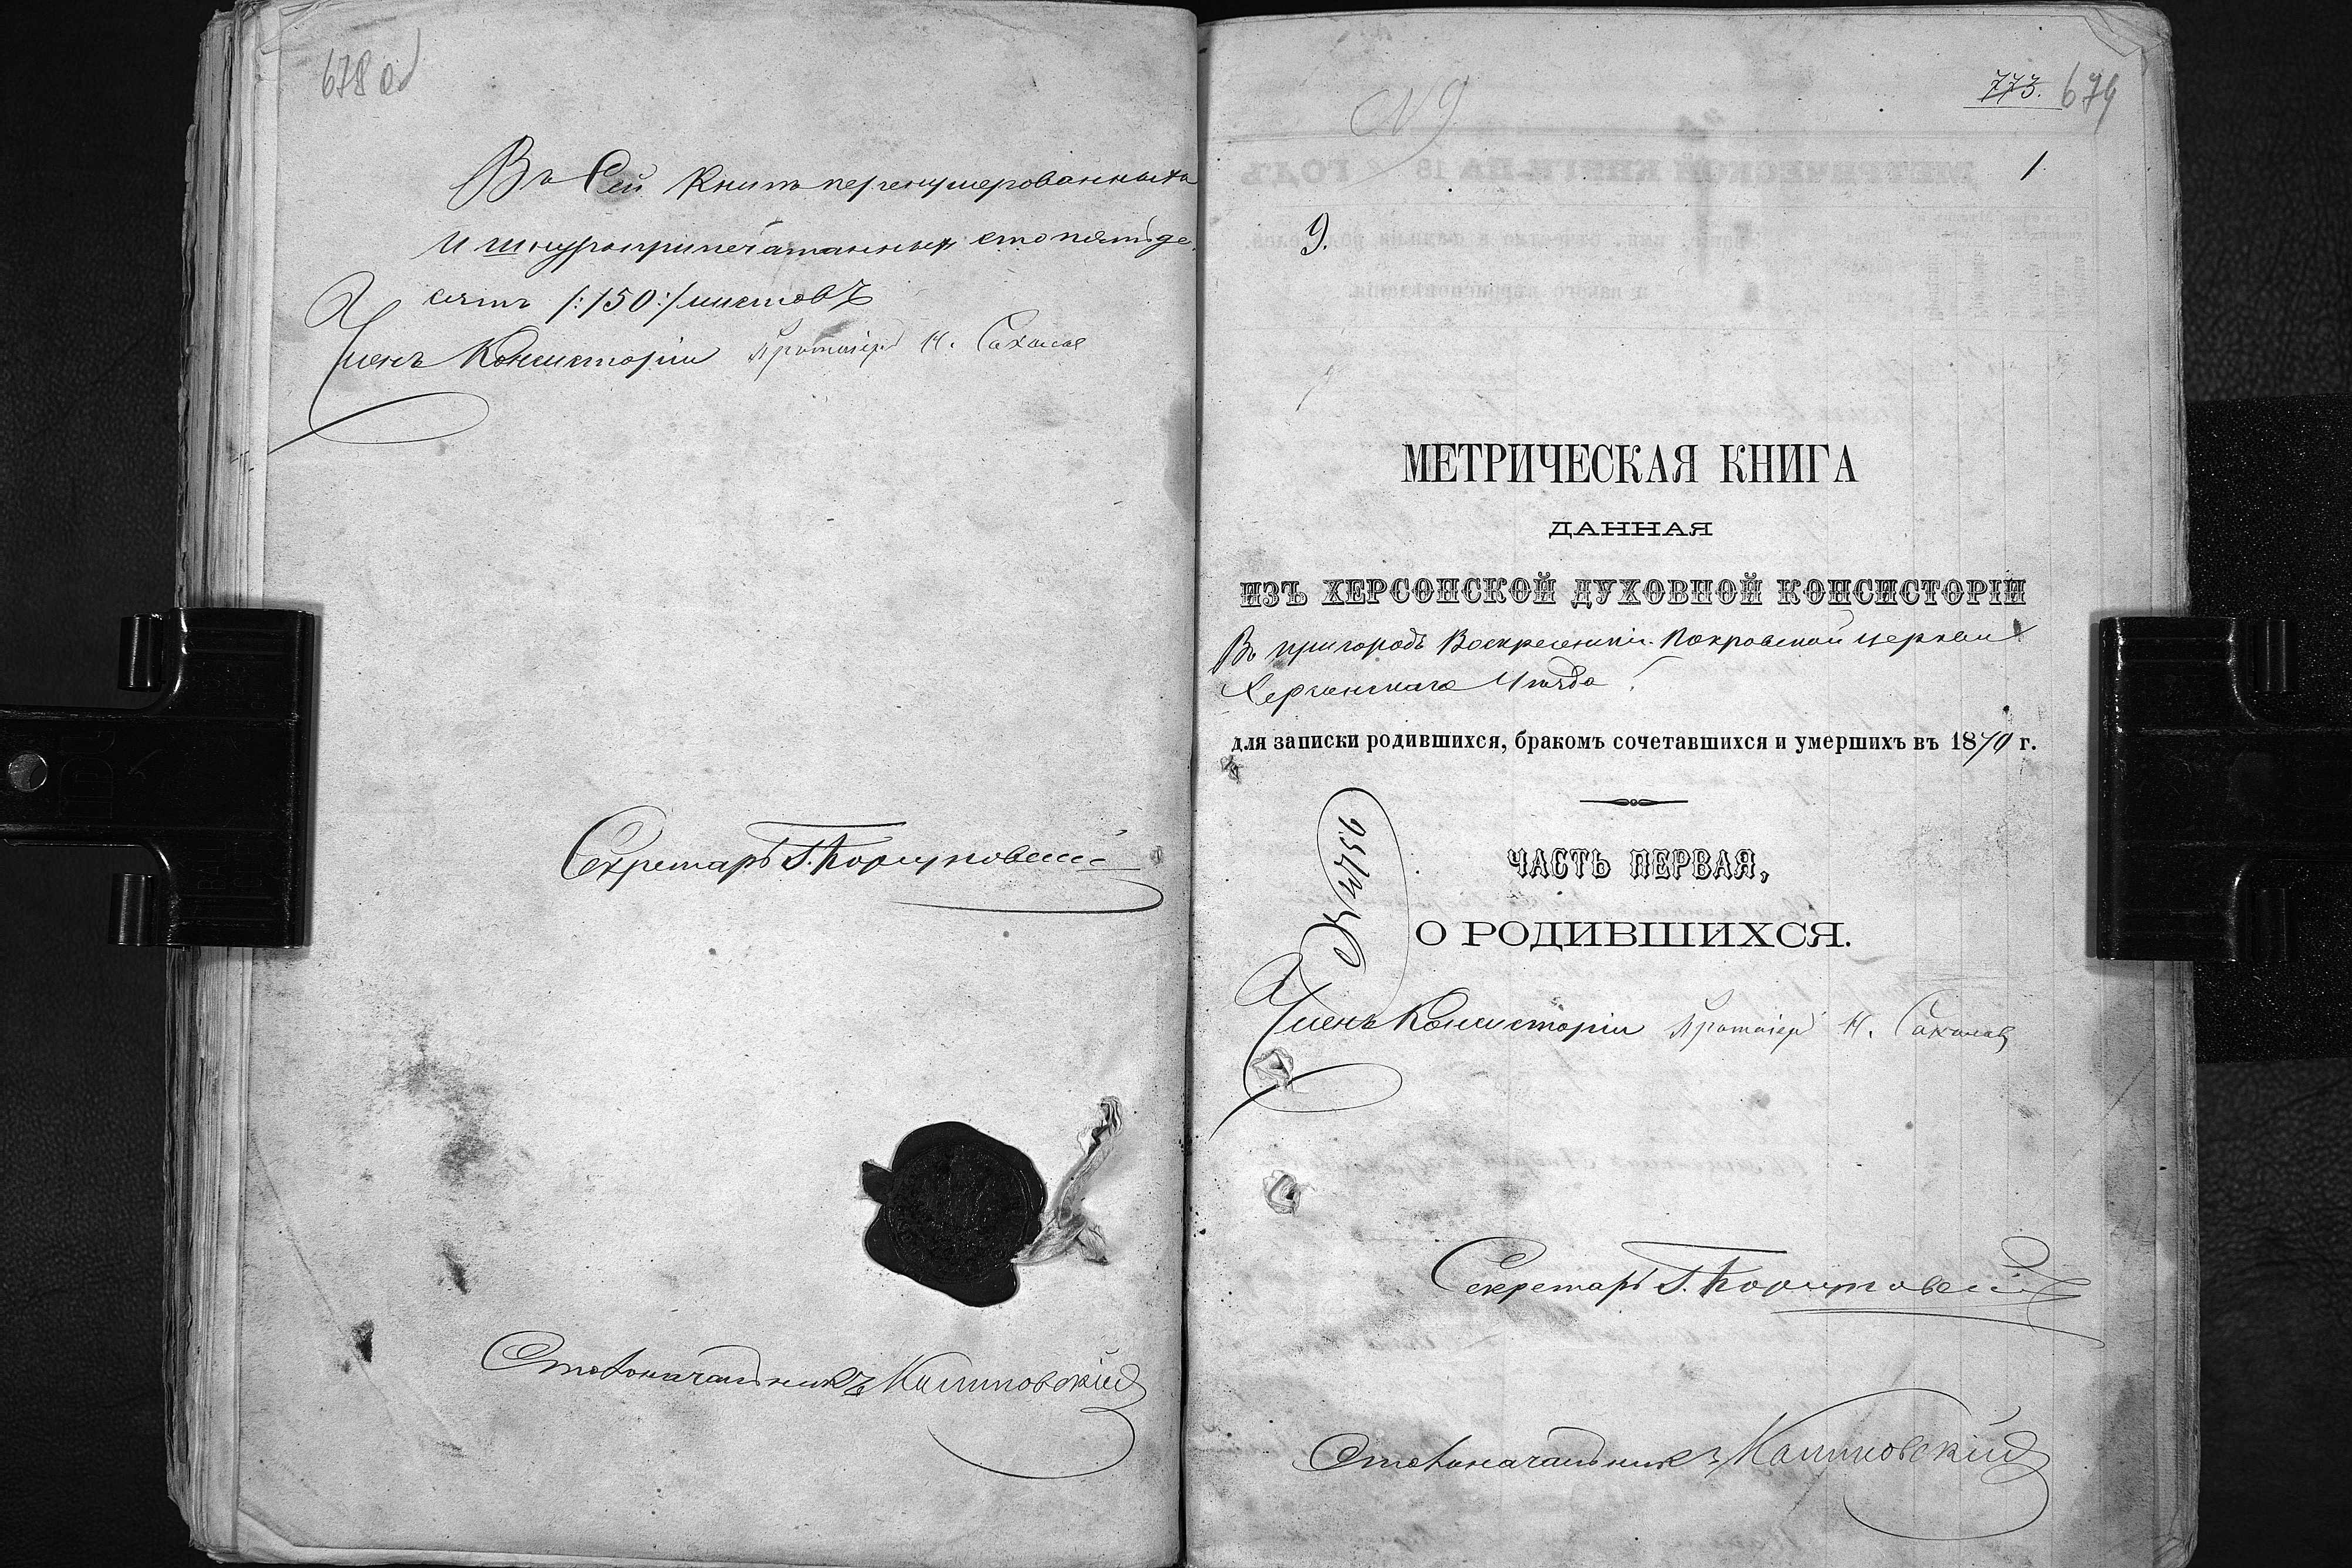 678 об
Въ сей книгѣ перенумерованныхъ
и шнуроприпечатанныхъ сто пятьде-
сятъ /:150:/ листовъ
Членъ Консисторіи Протоіерей Н.
Секретарь
Столоначальникъ Калиновскій
№ 9
773. 679
1.
9.
МЕТРИЧЕСКАЯ КНИГА
ДАННАЯ
ИЗЪ ХЕРСОНСКОЙ ДУХОВНОЙ КОНСИСТОРІИ
Въ пригородъ Воскресенскій Покровской церкви
Херсонскаго уѣзда.
для записки родившихся, бракомъ сочетавшихся и умершихъ въ 1870 г.
ЧАСТЬ ПЕРВАЯ,
О РОДИВШИХСЯ.
Членъ Консисторіи Протоіерей Н.
Секретарь
Столоначальникъ Калиновскій